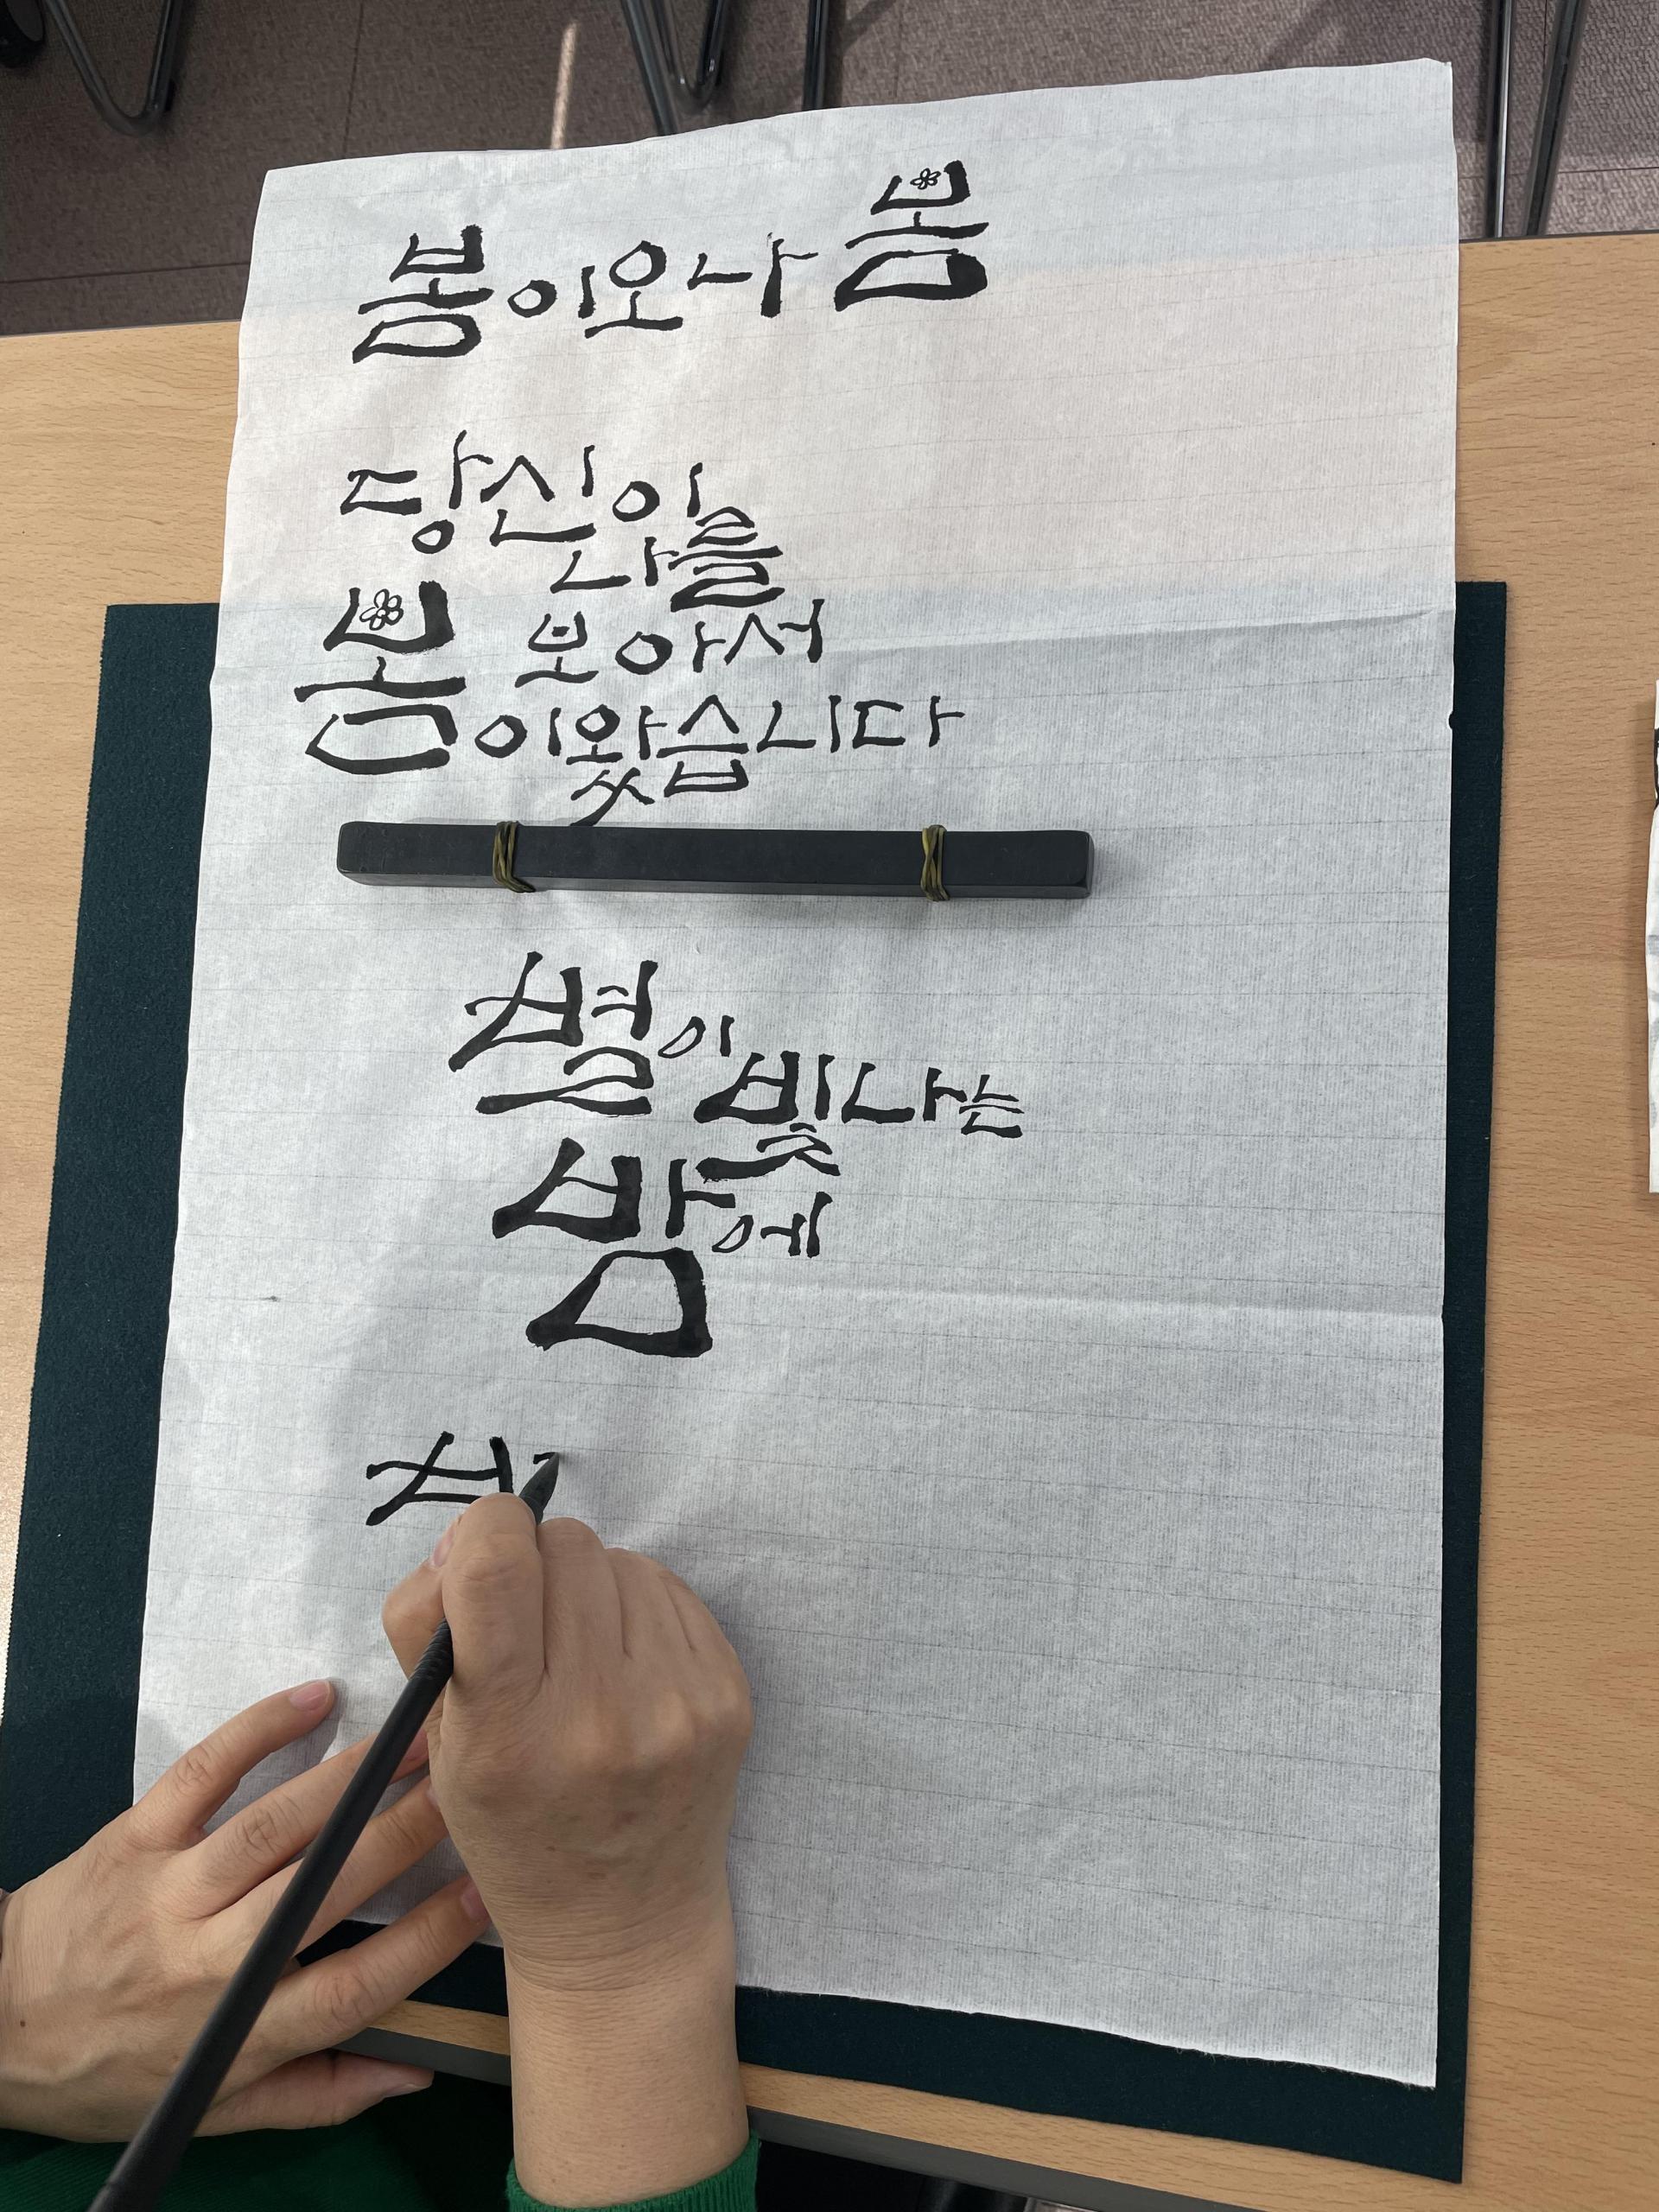 봄이오나 봄
당신이
나를
보아서
봄이왔습니다
별이
빛나는
밤에